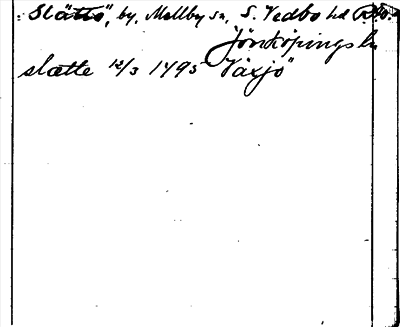 Slättö, by, Mellby sn, S. Vedbo hd
Jönköpings l.
slætte 12/3 1495 Växjö